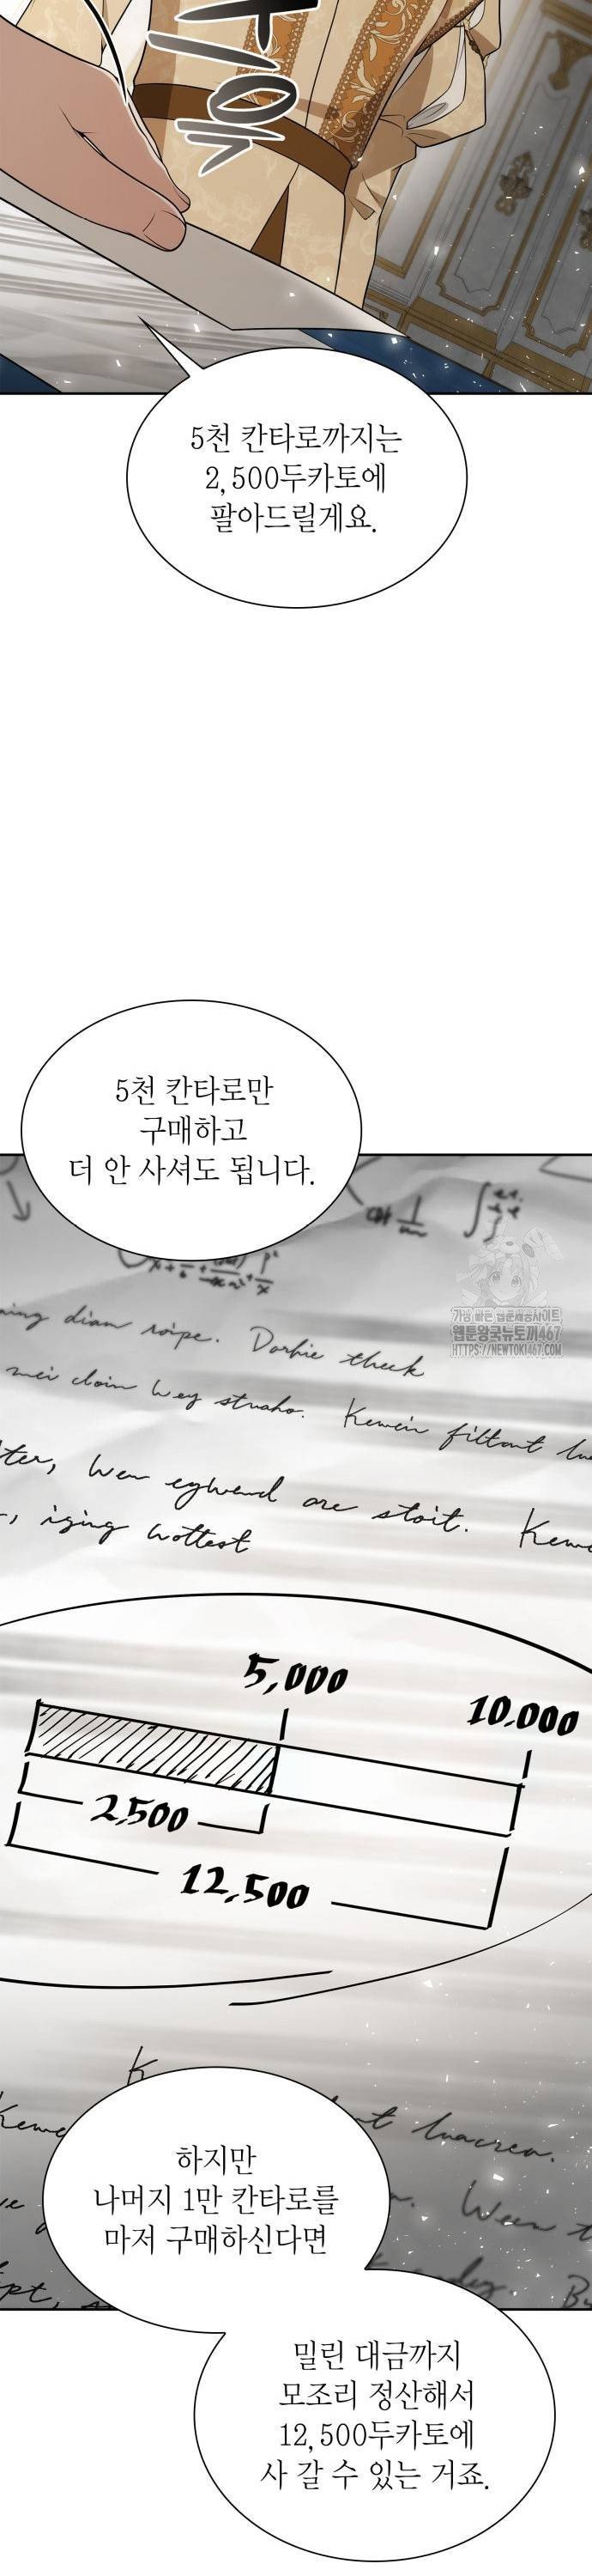 5천 칸타로까지는
2,500두카토에
팔아드릴게요.
5천 칸타로만
구매하고
더 안 사셔도 됩니다.
가장 빠른 웹툰제공사이트
웹툰왕국뉴토끼467
HTTPS://NEWTOKI467.COM
ming diam roipe. Dorhie theck
mei cloin Wey struaho. Kewein filtont
are stoit.
5,000
10,000
2,500
12,500
하지만
나머지 1만 칸타로를
마저 구매하신다면
밀린 대금까지
모조리 정산해서
12,500두카토에
사 갈 수 있는 거죠.